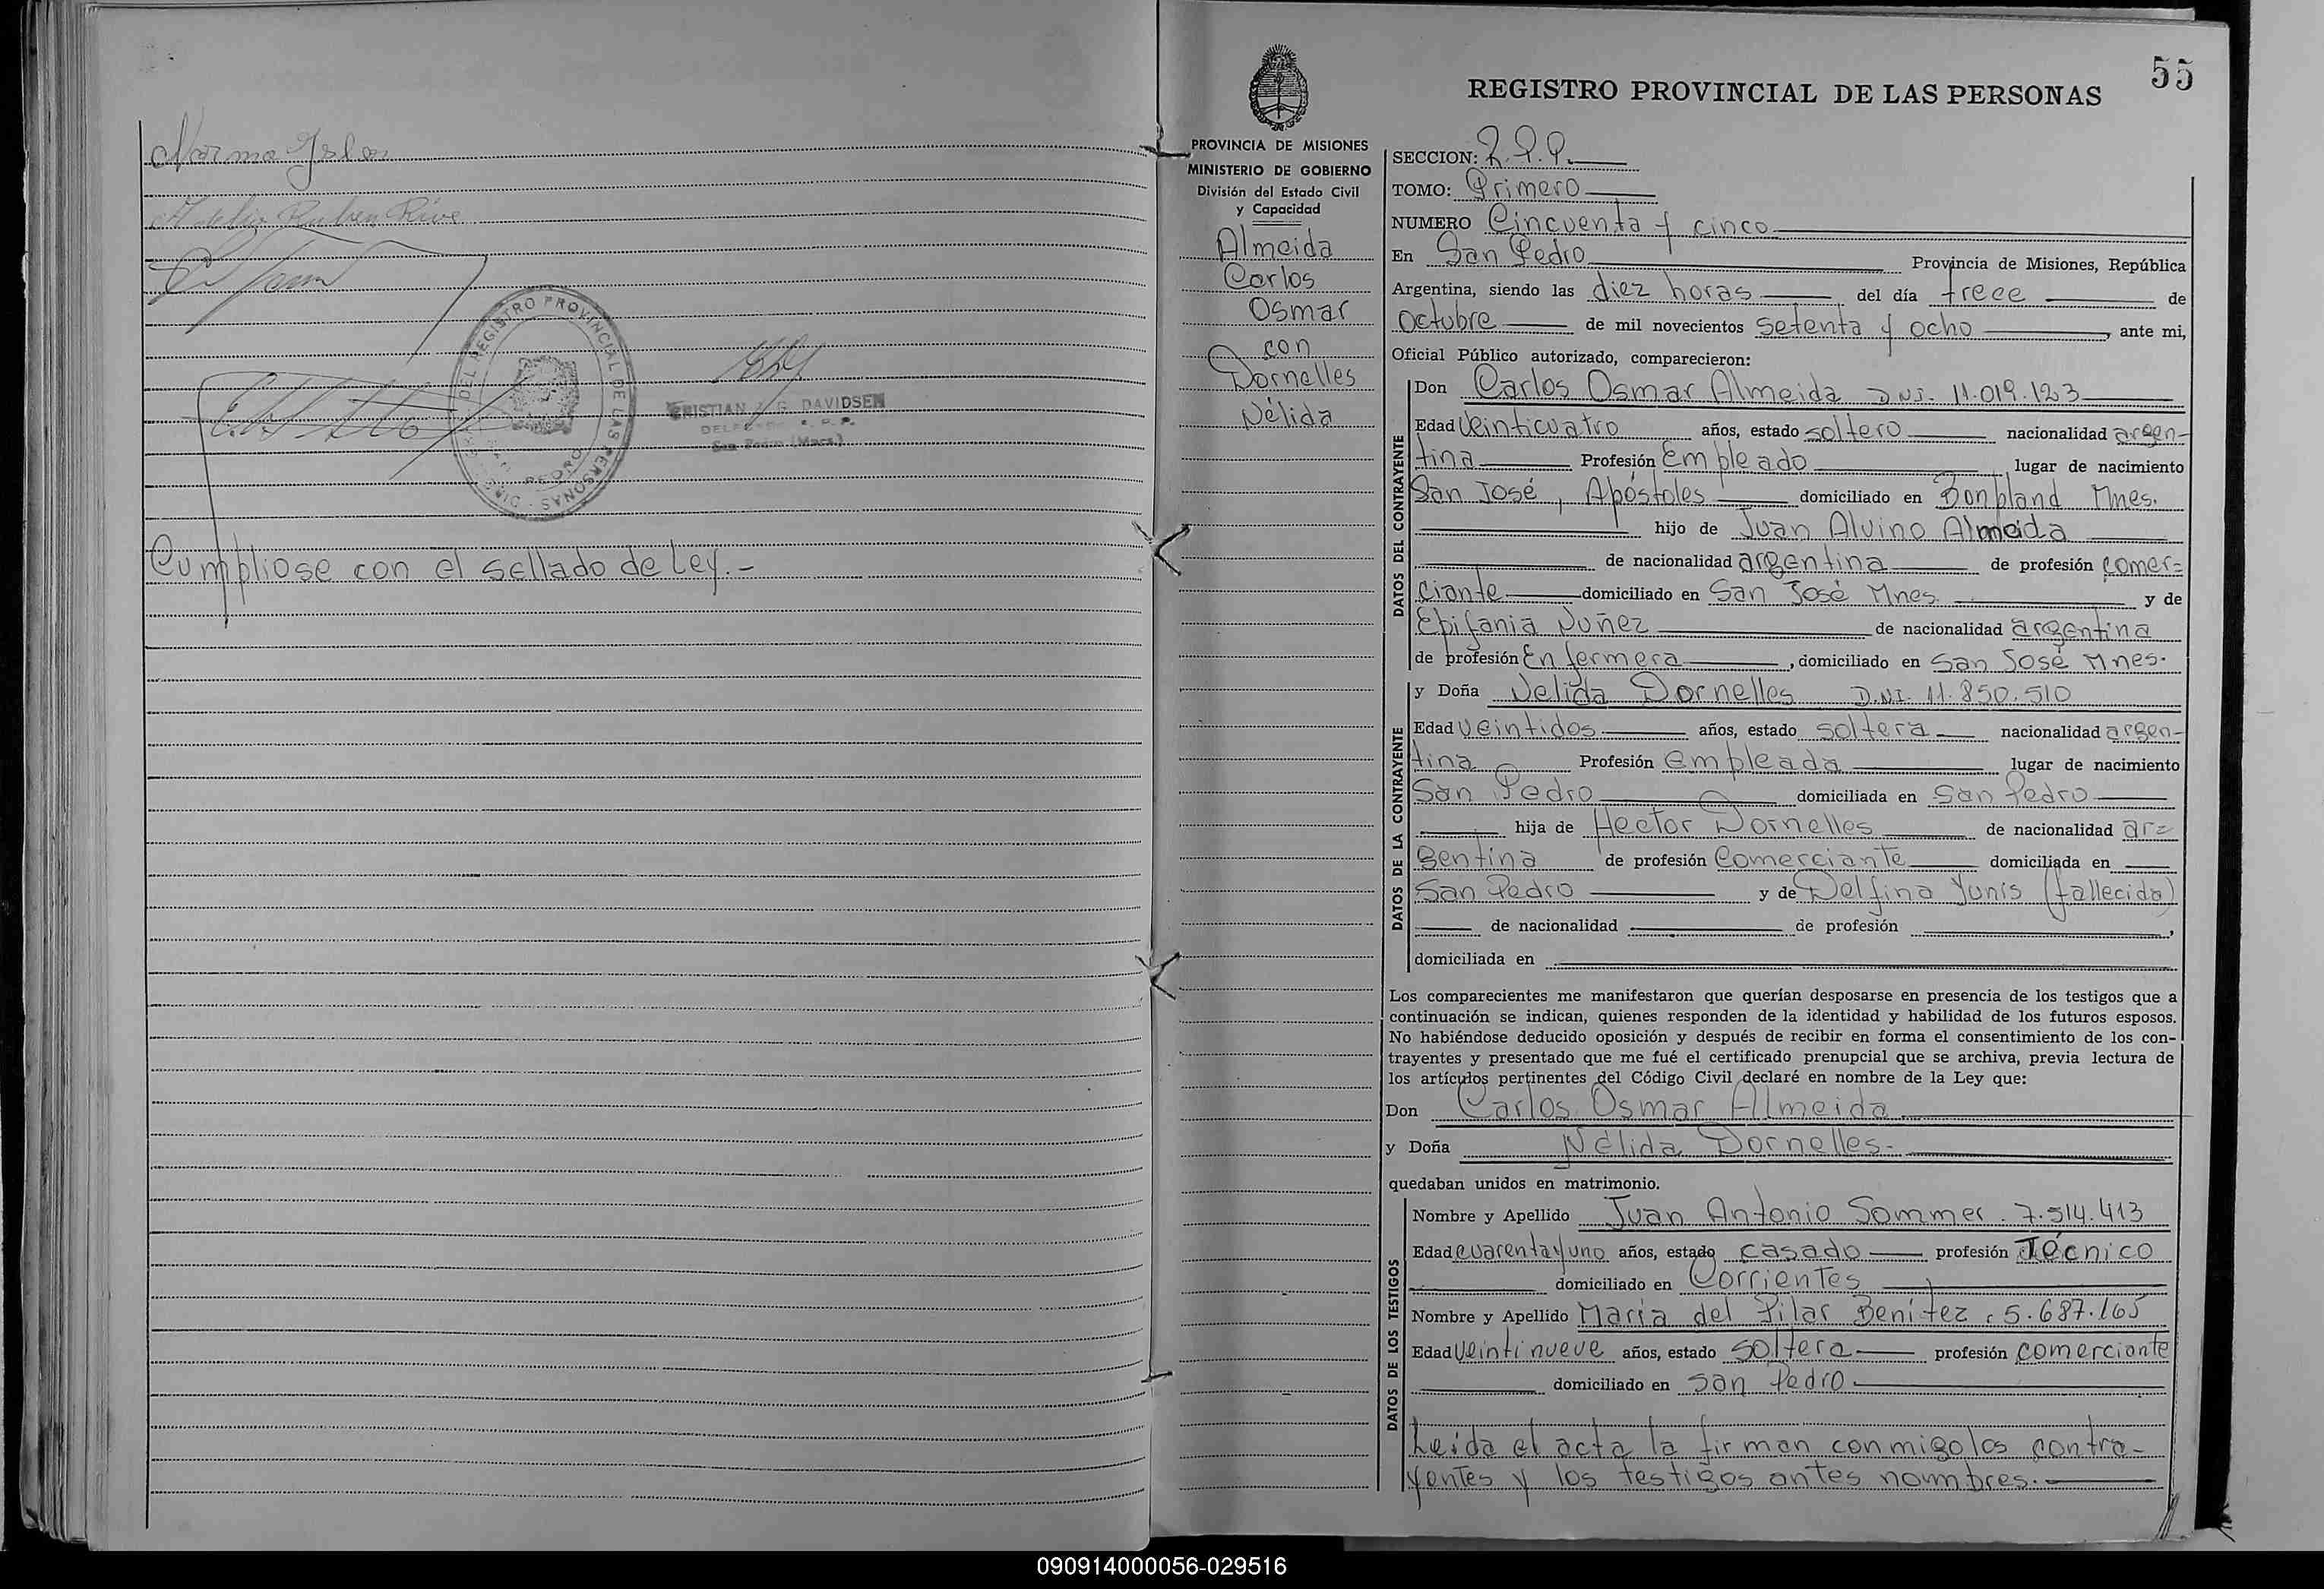 Norma
Ruben
DEL REGISTRO PROVINCIAL DE LAS PERSONAS
SAN PEDRO
CRISTIAN G. DAVIDSEN
San Pedro (Mnes.)
Cumpliose con el sellado de Ley.-
55
REGISTRO PROVINCIAL DE LAS PERSONAS
PROVINCIA DE MISIONES
MINISTERIO DE GOBIERNO
División del Estado Civil
y Capacidad
Almeida
Carlos
Osmar
con
Dornelles
Nélida
SECCION:
TOMO: Primero
NUMERO Cincuenta y cinco
En San Pedro Provincia de Misiones, República
Argentina, siendo las diez horas del día trece de
octubre de mil novecientos setenta y ocho, ante mi,
Oficial Público autorizado, comparecieron:
DATOS DEL CONTRAYENTE
Don Carlos Osmar Almeida D.N.I. 11.019.123
Edad veinticuatro años, estado soltero nacionalidad argen-
tina Profesión Empleado lugar de nacimiento
San José, Apóstoles domiciliado en Bonpland Mnes.
hijo de Juan Alvino Almeida
de nacionalidad argentina de profesión comer=
ciante domiciliado en San José Mnes y de
Epifania Nuñez de nacionalidad argentina
de profesión Enfermera, domiciliado en San José Mnes.
DATOS DE LA CONTRAYENTE
y Doña Nelida Dornelles D.N.I. 11.850.510
Edad veintidos años, estado soltera nacionalidad argen-
tina Profesión empleada lugar de nacimiento
San Pedro domiciliada en San Pedro
hija de Hector Dornelles de nacionalidad ar=
gentina de profesión Comerciante domiciliada en
San Pedro y de Delfina Yunis (fallecida)
de nacionalidad de profesión ,
domiciliada en
Los comparecientes me manifestaron que querían desposarse en presencia de los testigos que a
continuación se indican, quienes responden de la identidad y habilidad de los futuros esposos.
No habiéndose deducido oposición y después de recibir en forma el consentimiento de los con-
trayentes y presentado que me fué el certificado prenupcial que se archiva, previa lectura de
los artículos pertinentes del Código Civil declaré en nombre de la Ley que:
Don Carlos Osmar Almeida
y Doña Nélida Dornelles-
quedaban unidos en matrimonio.
DATOS DE LOS TESTIGOS
Nombre y Apellido Juan Antonio Sommer. 7.514.413
Edad cuarenta y uno años, estado casado profesión Técnico
domiciliado en Corrientes
Nombre y Apellido Maria del Pilar Benítez. 5.687.165
Edad veintinueve años, estado soltera profesión comerciante
domiciliado en San Pedro
Leida el acta la firman conmigo los contra-
yentes y los testigos antes nombres.
090914000056-029516